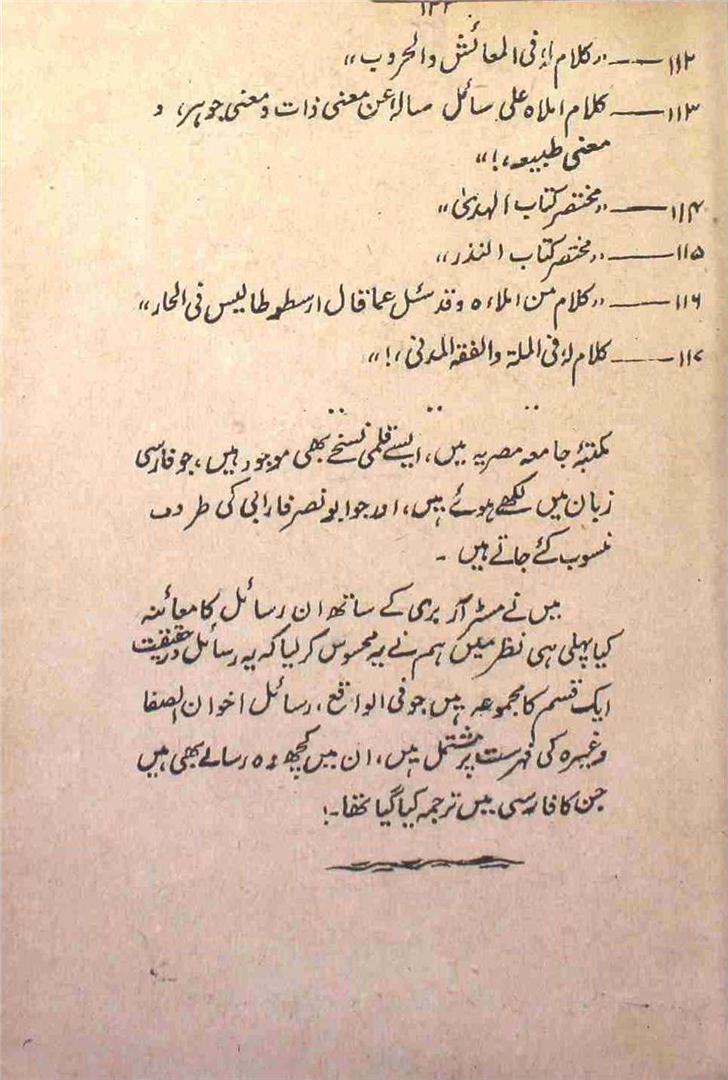 ۱۱۲ — "کلام لہٗ فی المعائش والحروب"
۱۱۳ — کلام املاہ علی سائل سالہٗ عن معنی ذات و معنی جوہر، و
معنی طبیعہ،!"
۱۱۴ — "مختصر کتاب الہدیٰ"
۱۱۵ — "مختصر کتاب النذر"
۱۱۶ — "کلام من املاءہ وقد سئل عما قال ارسطوطالیس فی الحار"
۱۱۷ — کلام لہٗ فی الملۃ والفقہ المدنی،!"
مکتبۂ جامعہ مصریہ میں، ایسے قلمی نسخے بھی موجود ہیں، جو فارسی
زبان میں لکھے ہوئے ہیں، اور جو ابو نصر فارابی کی طرف
منسوب کئے جاتے ہیں ۔
میں نے مسٹر آر بری کے ساتھ ان رسائل کا معائنہ
کیا پہلی ہی نظر میں ہم نے یہ محسوس کر لیا کہ یہ رسائل درحقیقت
ایک قسم کا مجموعہ ہیں جو فی الواقع، رسائل اخوان الصفا
وغیرہ کی فہرست پر مشتمل ہیں، ان میں کچھ وہ رسالے بھی ہیں
جن کا فارسی میں ترجمہ کیا گیا تھا ۔!